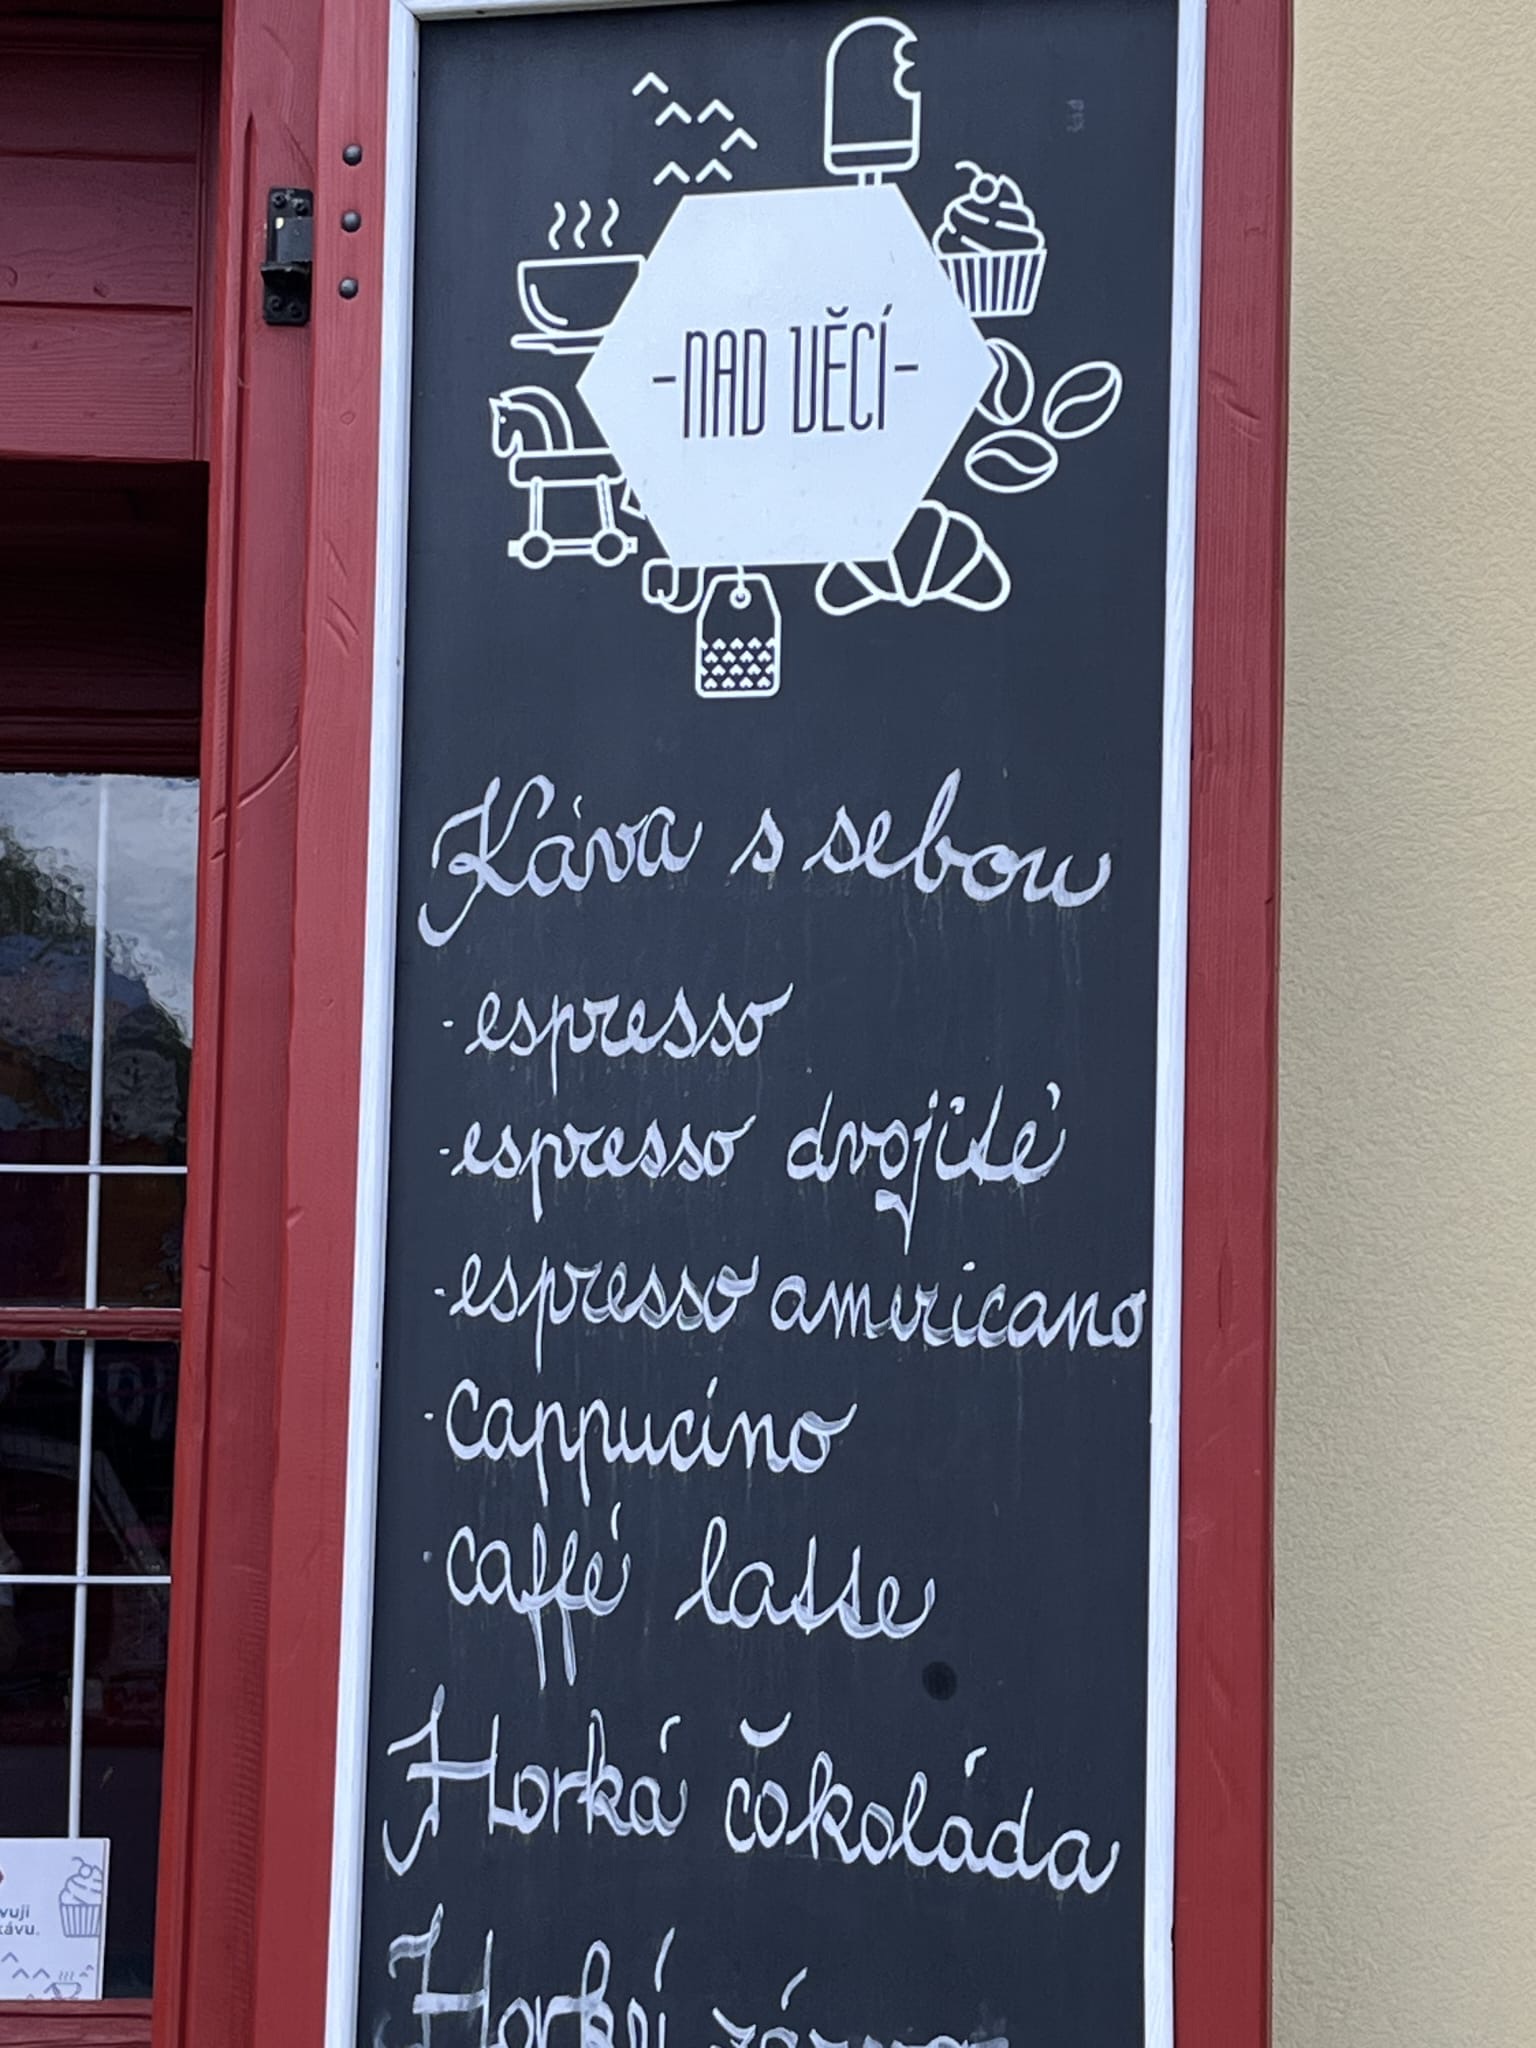 -NAD VĚCÍ-
Káva s sebou
-espresso
-espresso dvojité
-espresso americano
-cappucino
-caffé latte
Horká čokoláda
Horký
vuji
kávu.